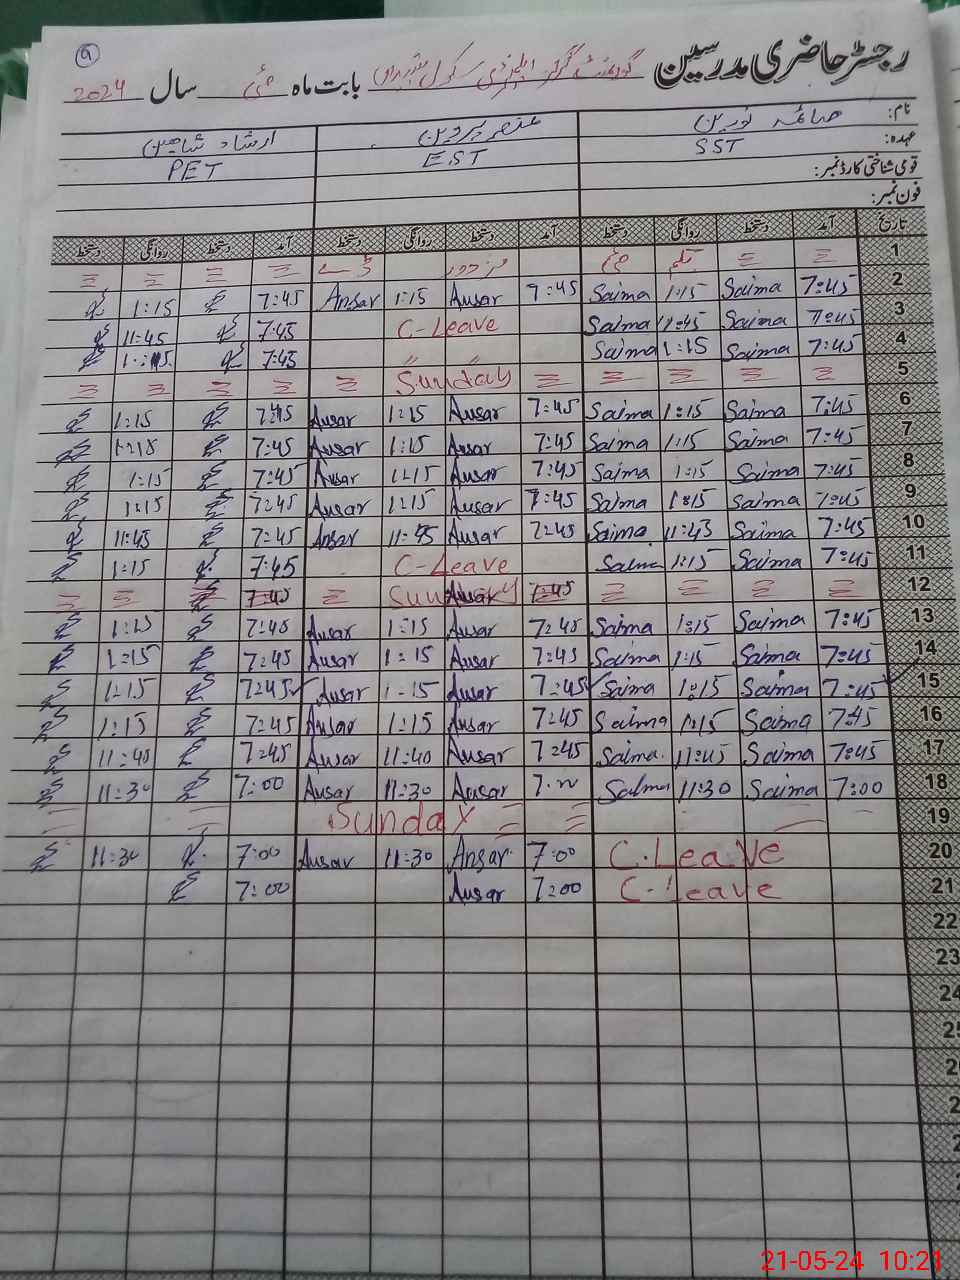 رجسٹر حاضری مدرسین گورنمنٹ گرلز ایلیمنٹری سکول بابت ماہ مئی سال 2024
نام: صائمہ نورین عنصر پروین ارشاد شاہین
عہدہ: SST EST PET
قومی شناختی کارڈ نمبر:
فون نمبر:
تاریخ آمد دستخط روانگی دستخط آمد دستخط روانگی دستخط آمد دستخط روانگی دستخط
1 = = یکم مئی مزدور ڈے = = = =
2 7:45 Saima 1:15 Saima 7:45 Ansar 1:15 Ansar 7:45 1:15
3 7:45 Saima 11:45 Saima C-Leave 7:45 11:45
4 7:45 Saima 1:15 Saima " " 7:45
5 = = = = = Sunday = = = = =
6 7:45 Saima 1:15 Saima 7:45 Ansar 1:15 Ansar 7:45 1:15
7 7:45 Saima 1:15 Saima 7:45 Ansar 1:15 Ansar 7:45
8 7:45 Saima 1:15 Saima 7:45 Ansar 1:15 Ansar 7:45 1:15
9 7:45 Saima 1:15 Saima 7:45 Ansar 1:15 Ansar 7:45 1:15
10 7:45 Saima 11:43 Saima 7:45 Ansar 11:45 Ansar 7:45 11:45
11 7:45 Saima 1:15 Saima C-Leave 7:45 1:15
12 = = = = 7:45 Ansar Sunday = 7:45 = =
13 7:45 Saima 1:15 Saima 7:45 Ansar 1:15 Ansar 7:45 1:15
14 7:45 Saima 1:15 Saima 7:45 Ansar 1:15 Ansar 7:45 1:15
15 7:45 Saima 1:15 Saima 7:45 Ansar 1:15 Ansar 7:45 1:15
16 7:45 Saima 1:15 Saima 7:45 Ansar 1:15 Ansar 7:45 1:15
17 7:45 Saima 11:45 Saima 7:45 Ansar 11:40 Ansar 7:45 11:40
18 7:00 Saima 11:30 Saima 7:00 Ansar 11:30 Ansar 7:00 11:30
19 Sunday
20 C.Leave 7:00 Ansar 11:30 Ansar 7:00 11:30
21 C-Leave 7:00 Ansar 7:00
22
23
24
21-05-24 10:21